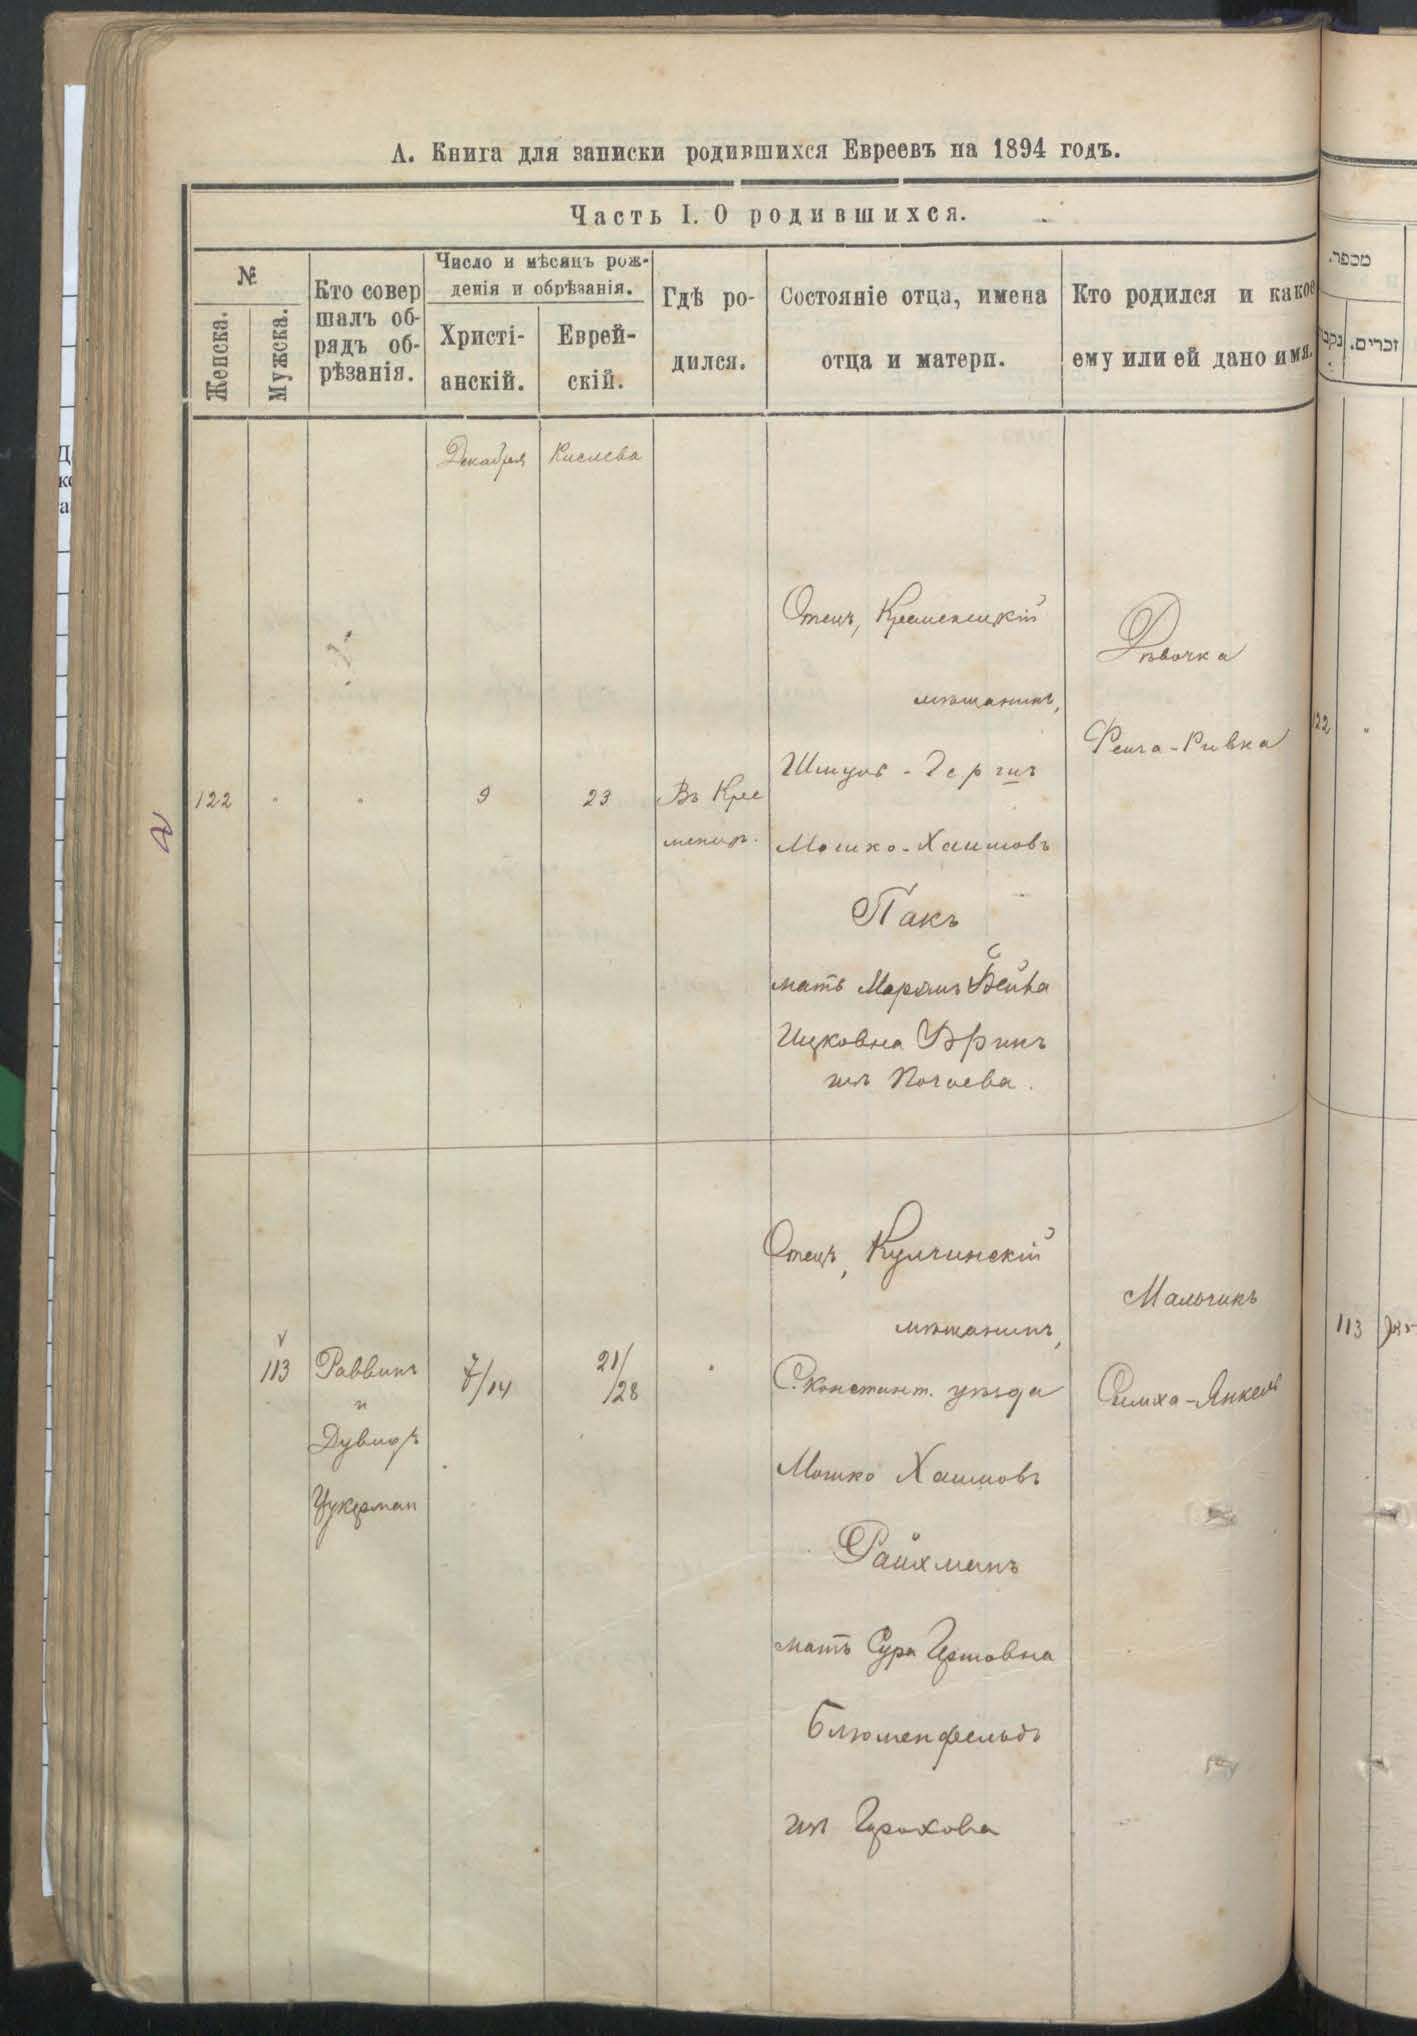 А. Книга для записки родившихся Евреевъ на 1894 годъ.
Часть I. О родившихся.
№
Женска.
Мужска.
Кто совер
шалъ об-
рядъ об-
рѣзанія.
Число и мѣсяцъ рож-
денія и обрѣзанія.
Христі-
анскій.
Еврей-
скій.
Гдѣ ро-
дился.
Состояніе отца, имена
отца и матери.
Кто родился и какое
ему или ей дано имя.
Декабря
Кислева
122
9
23
Въ Кре
менцѣ.
Отецъ, Кременецкій
мѣщанинъ,
Шмуль-Гершъ
Мошко-Хаимовъ
Пакъ
мать Маріамъ Бейла
Ицковна Бринъ
изъ Почаева.
Дѣвочка
Фейга-Ривка
113
Раввинъ
и
Дувидъ
Цукерман
7/14
21/
/28
Отецъ, Кульчинскій
мѣщанинъ,
С. Констант. уѣзда
Мошко Хаимовъ
Райхманъ
мать Сура Гершовна
Блюменфельдъ
изъ Горохова
Мальчикъ
Симха-Янкель
מספר.
זכרים.
122
113